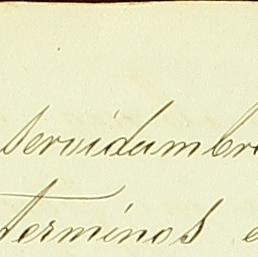 servidumbre
terminos e